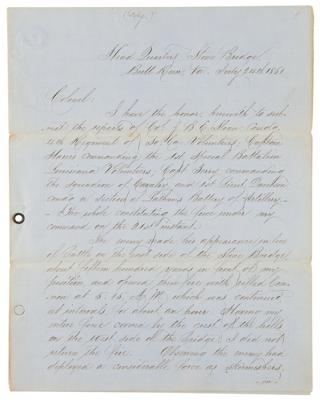 (Copy.)
Head Quarters Stone Bridge
Bull Run Va. July 24th 1861
Colonel:
I have the honor herewith to sub-
mit the reports of Col J B E Sloan Comdg
4th Regiment of So Ca Volunteers, Captain
Harris commanding the 1st Special Battalion
Louisiana Volunteers, Capt Terry commanding
the squadron of Cavalry and 1st Lieut Davidson
comdg a section of Latham's Battery of Artillery—
—The whole constituting the force under my
command on the 21st instant.
The enemy made his appearance in line
of Battle on the east side of the Stone Bridge
about fifteen hundred yards in front of my
position, and opened their fire with rifled Can-
non at 5.15, A.M. which was continued
at intervals, for about an hour. Having my
entire force covered by the crest of the hills
on the west side of the bridge, I did not
return the fire. Observing the enemy had
deployed a considerable force as skirmishers,
in